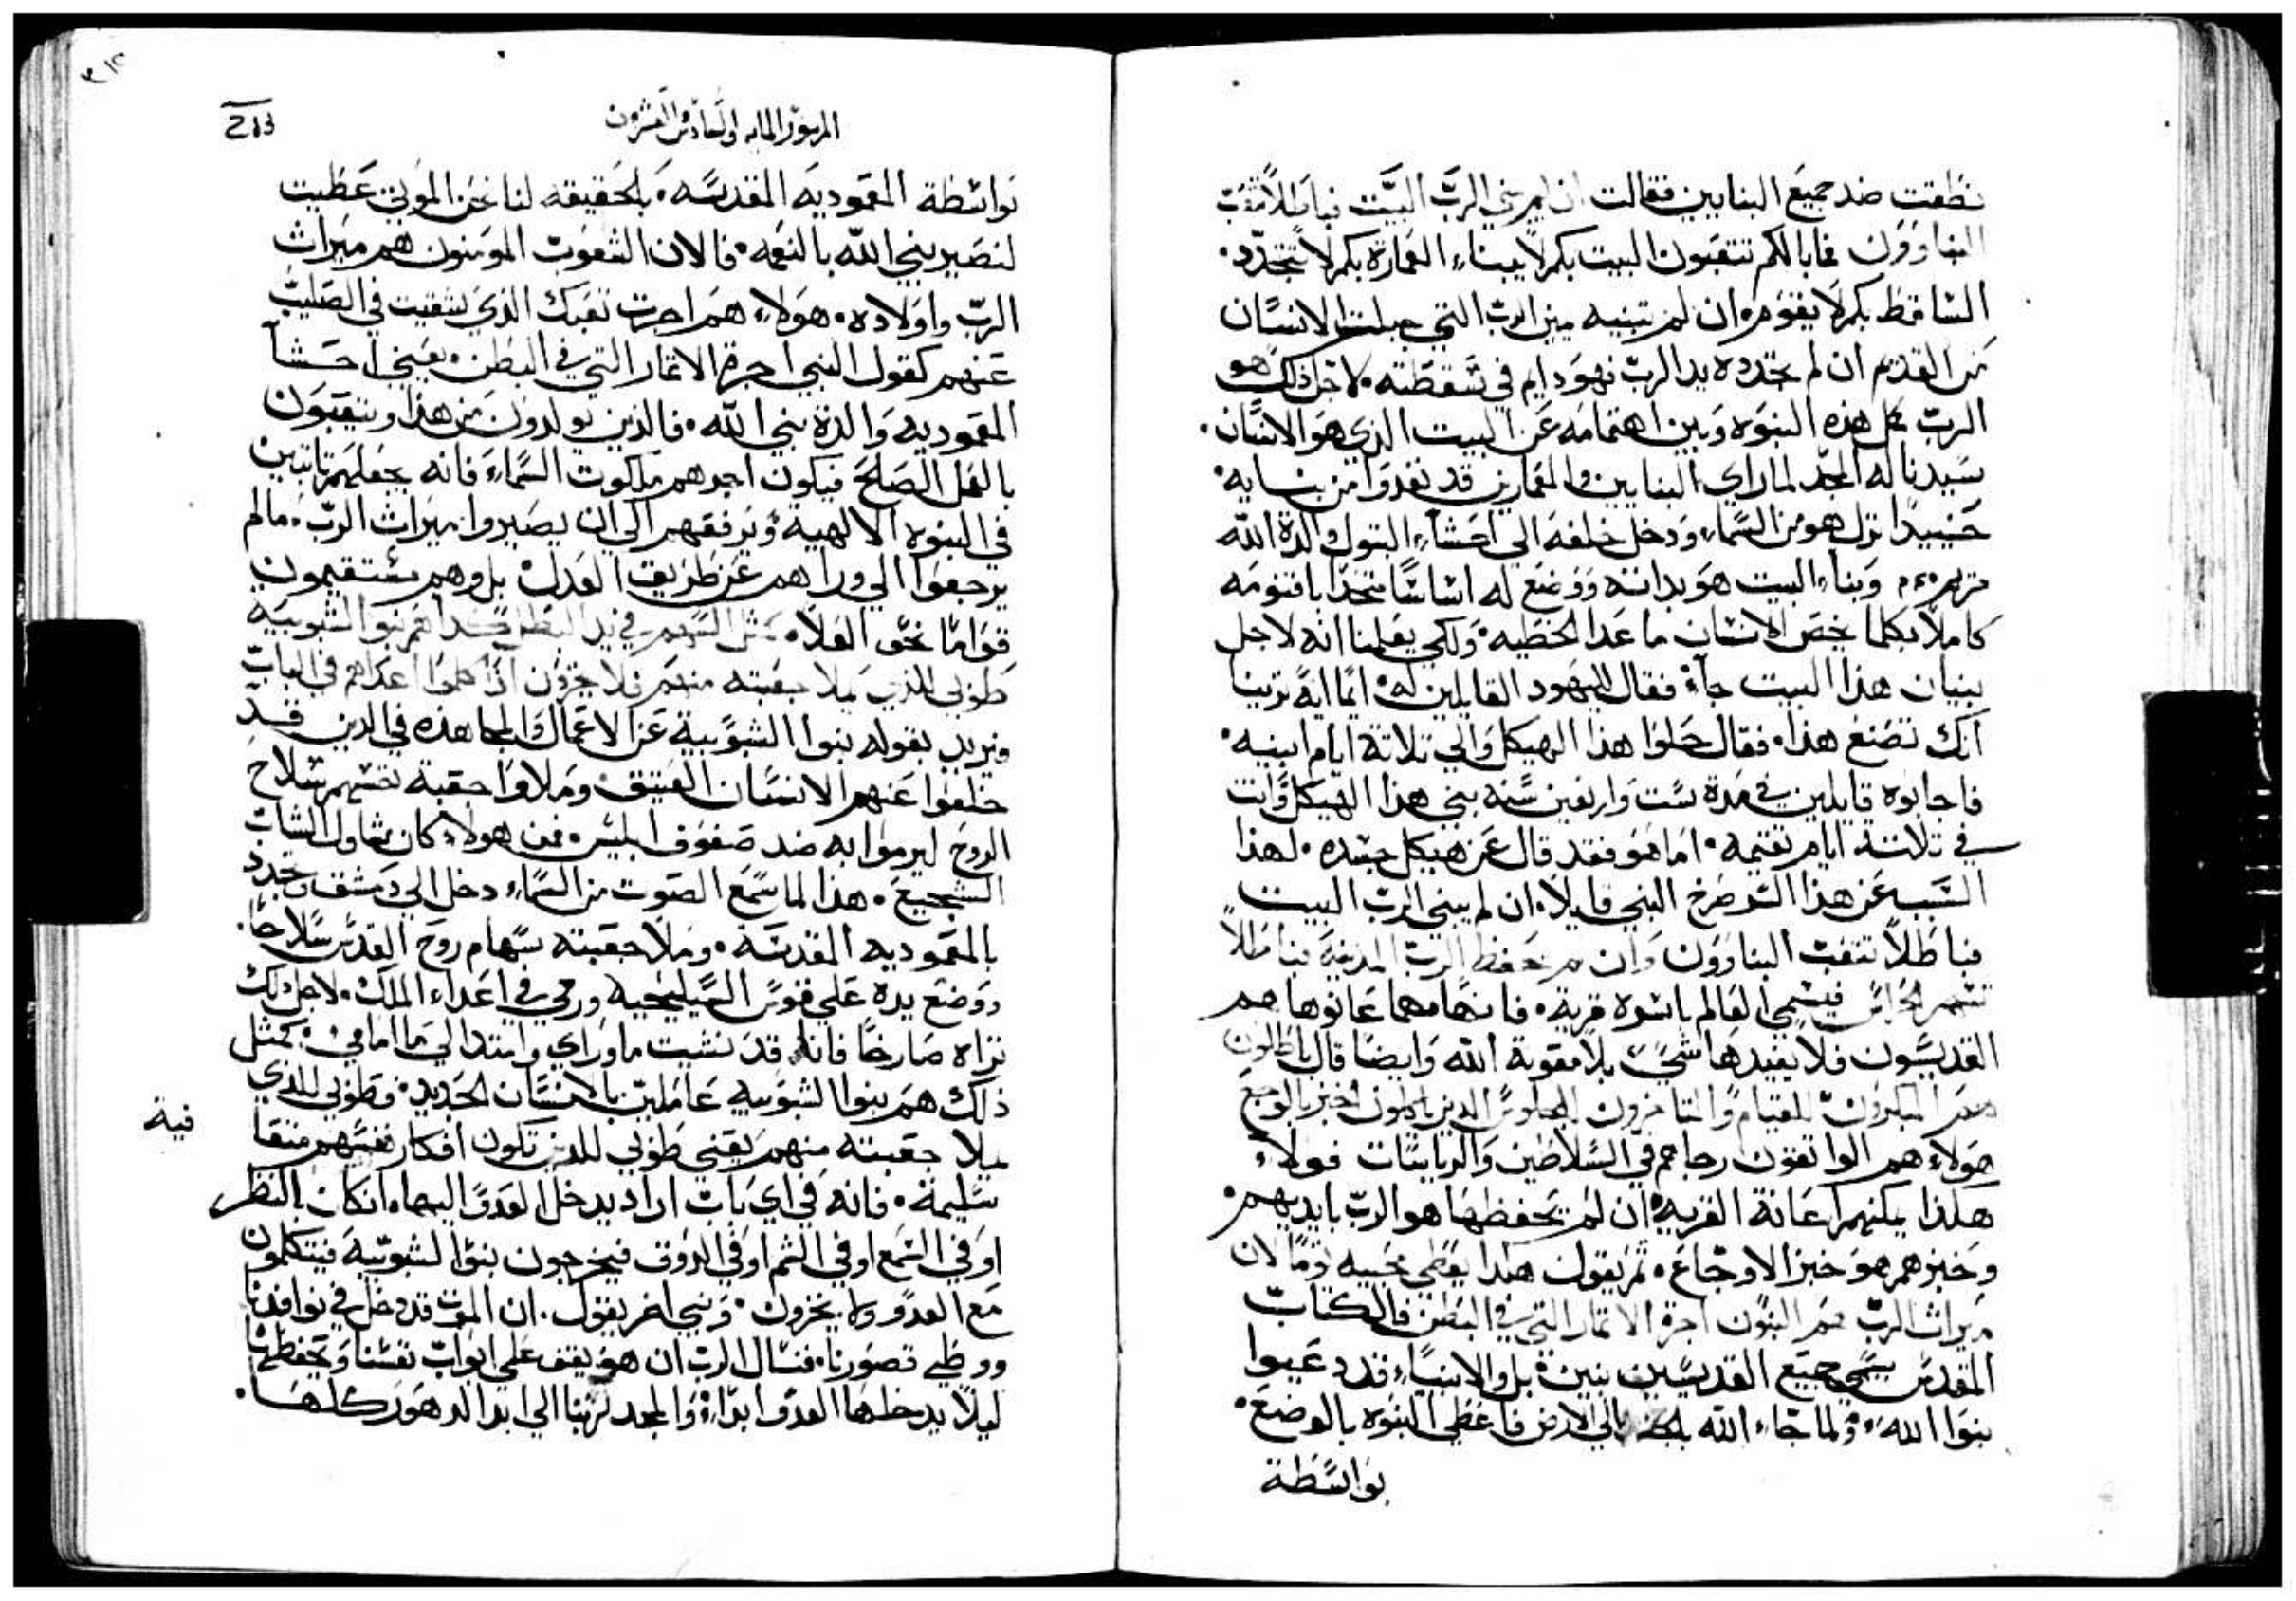 نطقت ضد جميع البنايين فقالت ان لم يبني الربّ البيَت فباطلاً تتعَبّ
البناوون فما بالكم تتعَبون البيت بكم لا يبناء، العَمارة بكم لا تتجدّد.
السَاقط بكم لا يقوم، ان لم تبنيه يمين الربّ التي جبلت الانسَان
مَن القديم ان لم تجدده يد الربّ فهوَ دايم في سَقطته. لاجل ذلك هو
الربّ كمل هذه النبَوه وَبين اهتمامه عَن البيت الذي هوَ الانسَان.
سَيدنا له المجد لما راي البنايين والمعَمارين قد بعدوا من بنايه.
حَينيدٍ نزل هو من السَماء، وَدخل خلفه الي احَشاء البتول والدة الله
مريم. وَبناء البيت هوَ بداته ووَضع له اسَاسًا متحدا باقنومه
كاملاً بكلما يخصَ الانسَان ما عَدا الخطيه. وَلكي يعَلمنا انه لاجل
بنيان هذا البيت جاء فقال لليهود القايلين له. ايما ايةً ترينا
انك تصَنع هذا. فقال حَلوا هذا الهيكل وَالي تلاتة ايام ابنيه.
فاجابوه قايلين في مَدة سَت وَاربعَين سَنه بني هذا الهيكل وَانت
في تلاتة ايام تقيمه. اما هوَ فقد قال عَن هيكل جسَده. لهذا
السَبب عَن هذا السَر صَرخ النبي قايلاً. ان لم يبني الربّ البيت
فباطَلاً تتعَبّ البناوون وَان لم يحَفظ الربّ المدينة فباطلاً
تسَهر الحراسَ فيسَمي العَالم باسَره قرية. فانها مهما عَانوها هم
القديسَون فلا يفيدها شيء بلا معَونة الله وَايضا قال باطَل هوَ
لكم التبكير للقيام وَالتاخرون للجلوسَ الدين ياكلون الخبز بالوجعَ
هَولاء هم الواتقون ارجاهم في السَلاطين وَالرياسَات فهولاء
هكذا يمكنهم اعَانة القريه. ان لم يحَفظها هو الربّ بايديهم.
وَخبزهم هوَ خبز الاوجاعَ. تم يقول هكذا يعَطي محَبيه نومًا لان
ميرات الربّ هم البنون اجرة الاتمار التي في البطن فالكتابّ
المقدسَ يسَمي جميَع القديسَين بنين بل والانبياء، قد دعَيوا
بنوَا الله. وَلما جاء الله بالجسد الي الارض فاعَطي البنوَه بالوضعَ.
بوَاسَطة
المزموَر المايه والسَادسَ والعَشرون
213
٣١٢
بَواسَطة المعَموديَه المقدسَه. بالحَقيقه لنا نحَن الموَتي عَطيت
لنصَير بني الله بالنعَمه. فالان الشعَوبّ الموَمنون هم ميَرات
الربّ وَاولاده. هوَلاء، همَ اجرت تعَبك الذي سَقيت في الصَليبّ
عَنهم كقول النبي اجرة الاتمار التي في البطن. يعَني احَشا
المعَموديه وَالدة بني الله. فالدين يولدون مَن هذا ويتعَبَون
بالعَمل الصَالح فيكون اجرهم ملكوت السَماء، فانه يجعَلهم تابتين
في البنوه الالهية وَيرفعَهم الي ان يصَيروا ميرات الربّ. مالم
يرجعَوا الي وراهم عَن طَريق العَدل. بل وهم مسَتقيمون
قوَامًا نحَو العَلاء. متل السَهم في يد البطل كدا هم بنوا الشبوبيَه
طَوبي للذي يملا جعَبته منهم فلا يخزون اذا كلموا اعَداهم في البابّ
ويَريد بقوله بنوا الشبوَبية عَن الاعَمال وَالمجاهدَه في الدين قد
خلعَوا عَنهم الانسَان العَتيق وَملاوَا جعَبة نفسَهم سَلاح
الروَح ليرموَا به ضد صَفوَف ابليسَ. فمن هولاء كان شَاول الشابّ
الشجيعَ. هذا لما سَمَع الصَوت من السَماء، دخل الي دَمشق وَتجدد
بالمعَموديه المقدسَه. وَملا جعَبته سَهام روح القدسَ سَلاحا.
ووَضعَ يده عَلي قوسَ المسَيحَية وَرمي في اعَداء الملك. لاجل ذلك
تراه صَارخًا فانه قد نسَيت ما وَراي وامتد الي ما امامي. كمتل
ذلك هم بنوا الشبوَبيه عَاملين بالانسَان الجديد. فطوَبي للذي
يملا جعَبته منهم يعَني طَوبي للدين تكون افكار نفسَهم متفقا
فية
سَليمة. فانه في اي بَابّ اراد يدخل العَدوَ اليها، ان كان بالنظر
اوَ في السَمع اوَ في الشم اوَ في الذوَق فيخرجون بنوَا الشبوبيَة فيتكلمون
مَع العَدو وَلا يخزون. وَنبي اخر يقول. ان الموَت قد دخل في نوافدنا
ووطي قصَورنا. فنسَال الربّ ان هوَ يقف عَلي ابوابّ نفسَنا وَيحَفظها
ليلا يدخلها العَدوَ ابدًا، وَالمجد لربنا الي ابد الدهوَر كلها.